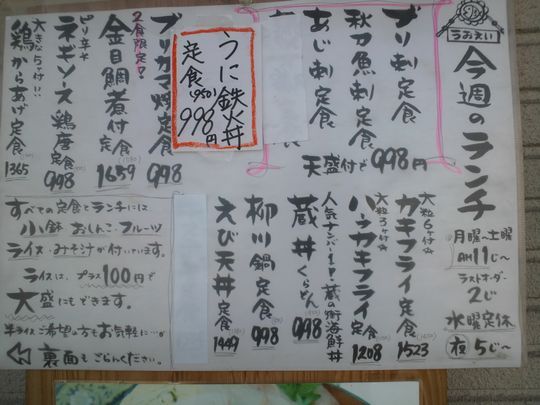 うおえい
今週のランチ
月曜～土曜
AM11じ～
ラストオーダー
2じ
水曜定休
夜5じ～
ブリ刺定食
秋刀魚刺定食
あじ刺定食
天盛付で998円
うに鉄火丼
定食(950)
998円
ブリカマ焼定食
998
2食限定!
金目鯛煮付
定食
1659
ピリ辛
ネギソース鶏唐
定食
998
大きな5ヶ付!!
鶏からあげ定食
1365
大粒6ヶ付
カキフライ定食
1523
大粒3ヶ付
ハーフカキフライ
定食
1208
人気ナンバー1!蔵の街海鮮丼
蔵丼くらどん
998
柳川鍋定食
998
えび天丼定食
1449
すべての定食とランチには
小鉢 おしんこ・フルーツ
ライス・みそ汁が付いています。
ライスは、プラス100円で
大盛にもできます。
半ライスご希望の方もお気軽に…が
裏面もごらんください。